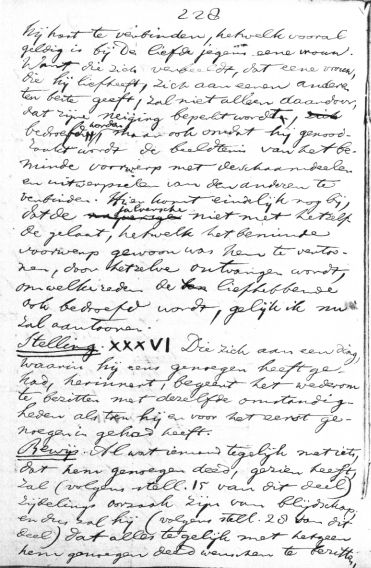 228
hij haat te verbinden, hetwelk vooral
geldig is bij De liefde jegens eene vrouw.
Want die zich verbeeldt, dat eene vrouw,
die hij liefheeft, zich aan eenen anderen
ten beste geeft, zal niet alleen daardoor,
dat zijn neiging beperkt wordt,
bedroefd worden, maar ook omdat hij genood-
zaakt wordt de beeldtenis van het be-
minde voorwerp met de schaamdeelen
en uitwerpselen van den anderen te
verbinden. Hier komt eindelijk nog bij,
dat de jaloersche niet met hetzelf
de gelaat, hetwelk het beminde
voorwerp gewoon was hem te verto-
nen, door hetzelve ontvangen wordt,
om welke reden de liefhebbende
ook bedroefd wordt, gelijk ik nu
zal aantoonen.
Stelling XXXVI Die zich aan een ding,
waarin hij eens genoegen heeft ge-
had, herinnert, begeert het wederom
te bezitten met dezelfde omstandig-
heden als toen hij er voor het eerst ge-
noegen in gehad heeft.
Bewijs. Al wat iemand tegelijk met iets,
dat hem genoegen deed, gezien heeft,
zal (volgens stell. 15 van dit deel)
zijdelings oorzaak zijn van blijdschap,
en dus zal hij (volgens stell. 28 van dit
deel) dat alles tegelijk met hetgeen
hem genoegen deed wenschen te bezitten,